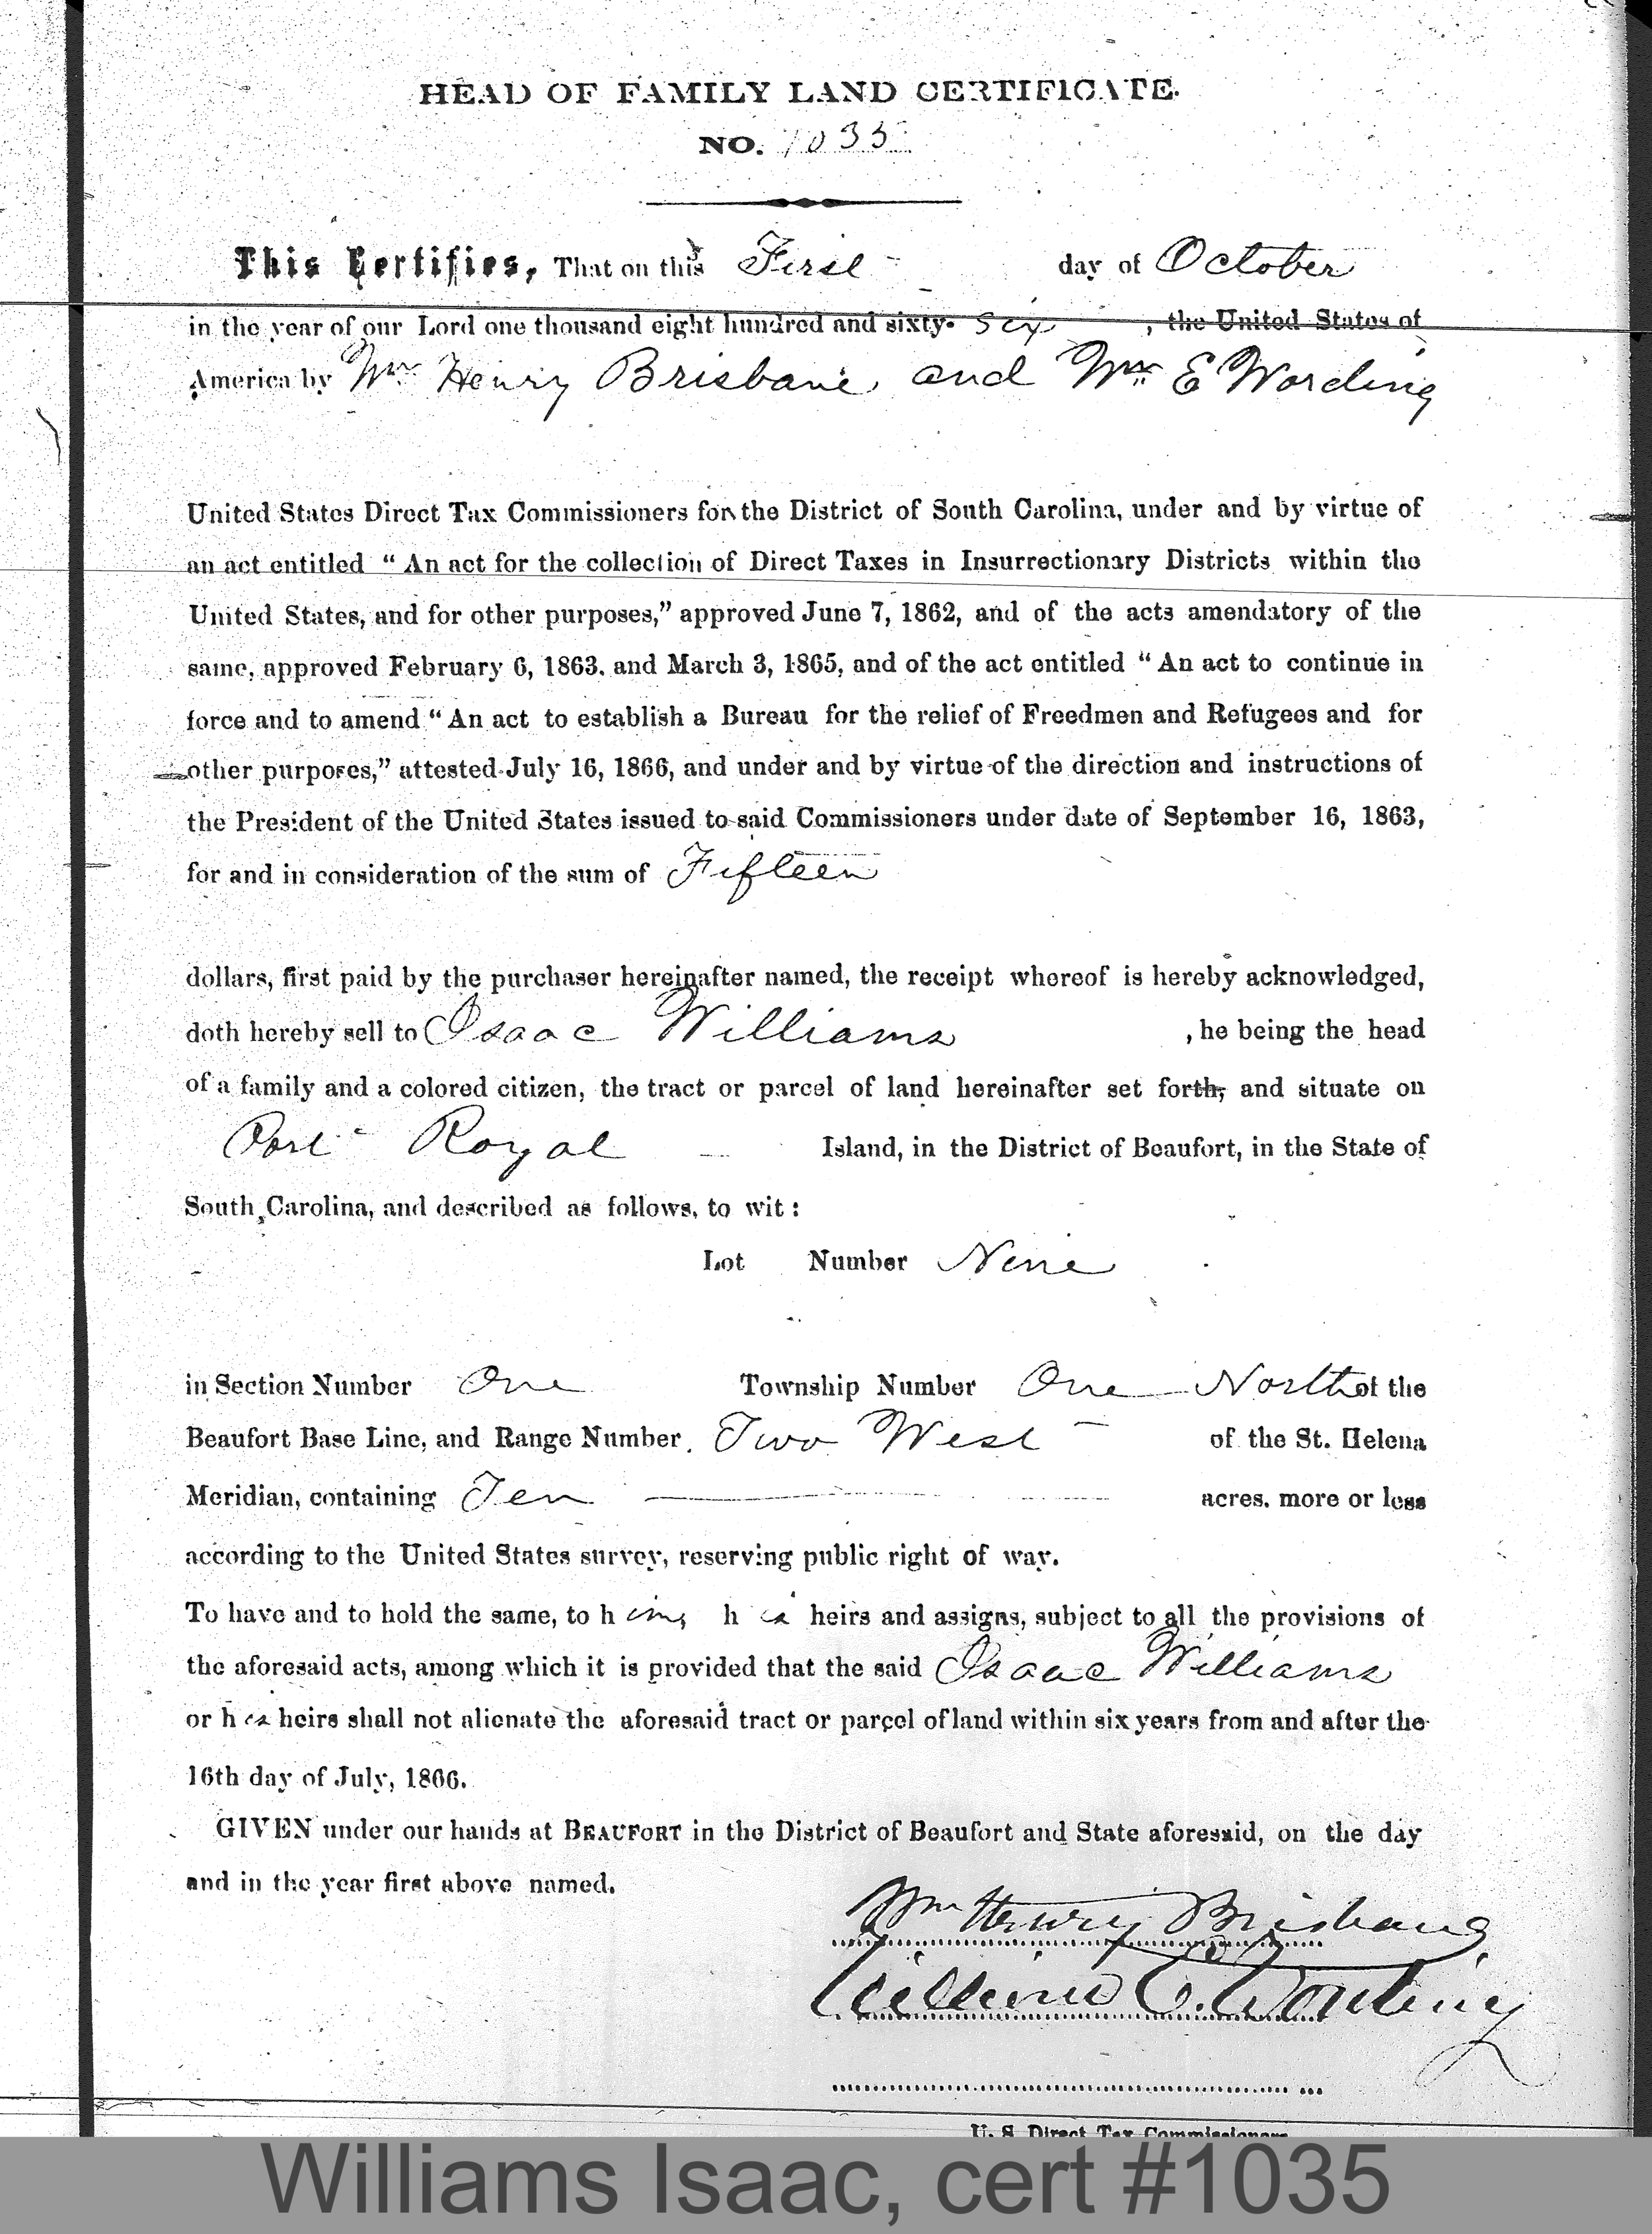 HEAD OF FAMILY LAND CERTIFICATE.
NO. 1035
This Certifies, That on this First day of October
in the year of our Lord one thousand eight hundred and sixty- six, the United States of
America by Wm Henry Brisbane and Wm E Wording
United States Direct Tax Commissioners for the District of South Carolina, under and by virtue of
an act entitled “ An act for the collection of Direct Taxes in Insurrectionary Districts within the
United States, and for other purposes,” approved June 7, 1862, and of the acts amendatory of the
same, approved February 6, 1863, and March 3, 1865, and of the act entitled “ An act to continue in
force and to amend “ An act to establish a Bureau for the relief of Freedmen and Refugees and for
other purposes,” attested July 16, 1866, and under and by virtue of the direction and instructions of
the President of the United States issued to said Commissioners under date of September 16, 1863,
for and in consideration of the sum of Fifteen
dollars, first paid by the purchaser hereinafter named, the receipt whereof is hereby acknowledged,
doth hereby sell to Isaac Williams , he being the head
of a family and a colored citizen, the tract or parcel of land hereinafter set forth, and situate on
Port Royal Island, in the District of Beaufort, in the State of
South Carolina, and described as follows, to wit :
Lot Number Nine
in Section Number One Township Number One North of the
Beaufort Base Line, and Range Number Two West of the St. Helena
Meridian, containing Ten acres, more or less
according to the United States survey, reserving public right of way.
To have and to hold the same, to him, his heirs and assigns, subject to all the provisions of
the aforesaid acts, among which it is provided that the said Isaac Williams
or his heirs shall not alienate the aforesaid tract or parcel of land within six years from and after the
16th day of July, 1866.
GIVEN under our hands at BEAUFORT in the District of Beaufort and State aforesaid, on the day
and in the year first above named.
Wm Henry Brisbane
William E. Wording
U. S. Direct Tax Commissioners
Williams Isaac, cert #1035